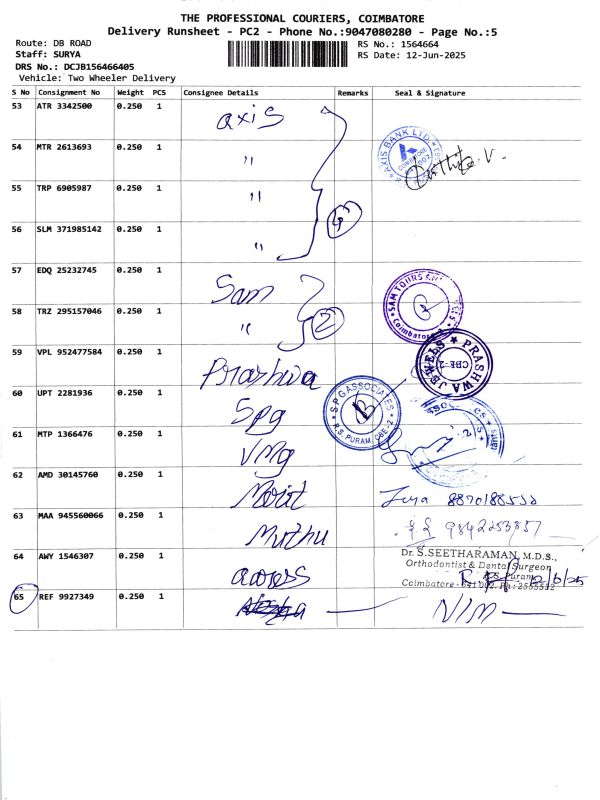 THE PROFESSIONAL COURIERS, COIMBATORE
Delivery Runsheet - PC2 - Phone No.:9047080280 - Page No.:5
Route: DB ROAD
RS No.: 1564664
Staff: SURYA
RS Date: 12-Jun-2025
DRS No.: DCJB156466405
Vehicle: Two Wheeler Delivery
S No Consignment No Weight PCS Consignee Details Remarks Seal & Signature
53 ATR 3342500 0.250 1 axis
54 MTR 2613693 0.250 1 "
AXIS BANK LTD
55 TRP 6905987 0.250 1 "
4
56 SLM 371985142 0.250 1 "
57 EDQ 25232745 0.250 1 Sam
SAM TOURS
Coimbatore
58 TRZ 295157046 0.250 1 "
2
59 VPL 952477584 0.250 1 Prashwa
PRASHWA JEWELS
CBE-2
60 UPT 2281936 0.250 1 Spg
S.P.G ASSOCIATES
R.S. PURAM, CBE-2
61 MTP 1366476 0.250 1 VMG
62 AMD 30145760 0.250 1
63 MAA 945560066 0.250 1 Muthu
9842253857
Dr. S.SEETHARAMAN, M.D.S.,
Orthodontist & Dental Surgeon
R.S. Puram
Coimbatore - 641 002. Ph: 2555532
12/6/25
64 AWY 1546307 0.250 1
65 REF 9927349 0.250 1